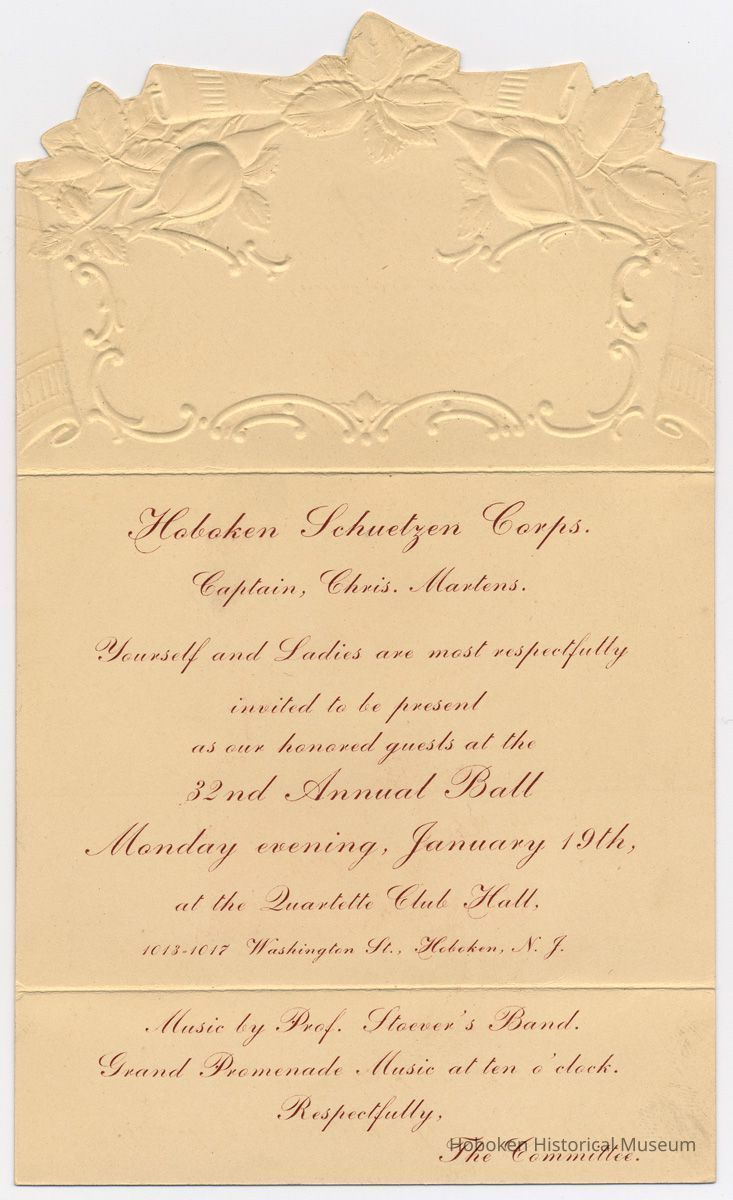 Hoboken Schuetzen Corps.
Captain, Chris. Martens.
Yourself and Ladies are most respectfully
invited to be present
as our honored guests at the
32nd Annual Ball
Monday evening, January 19th,
at the Quartette Club Hall,
1013-1017 Washington St., Hoboken, N. J.
Music by Prof. Stoever's Band.
Grand Promenade Music at ten o'clock.
Respectfully,
The Committee.
Hoboken Historical Museum